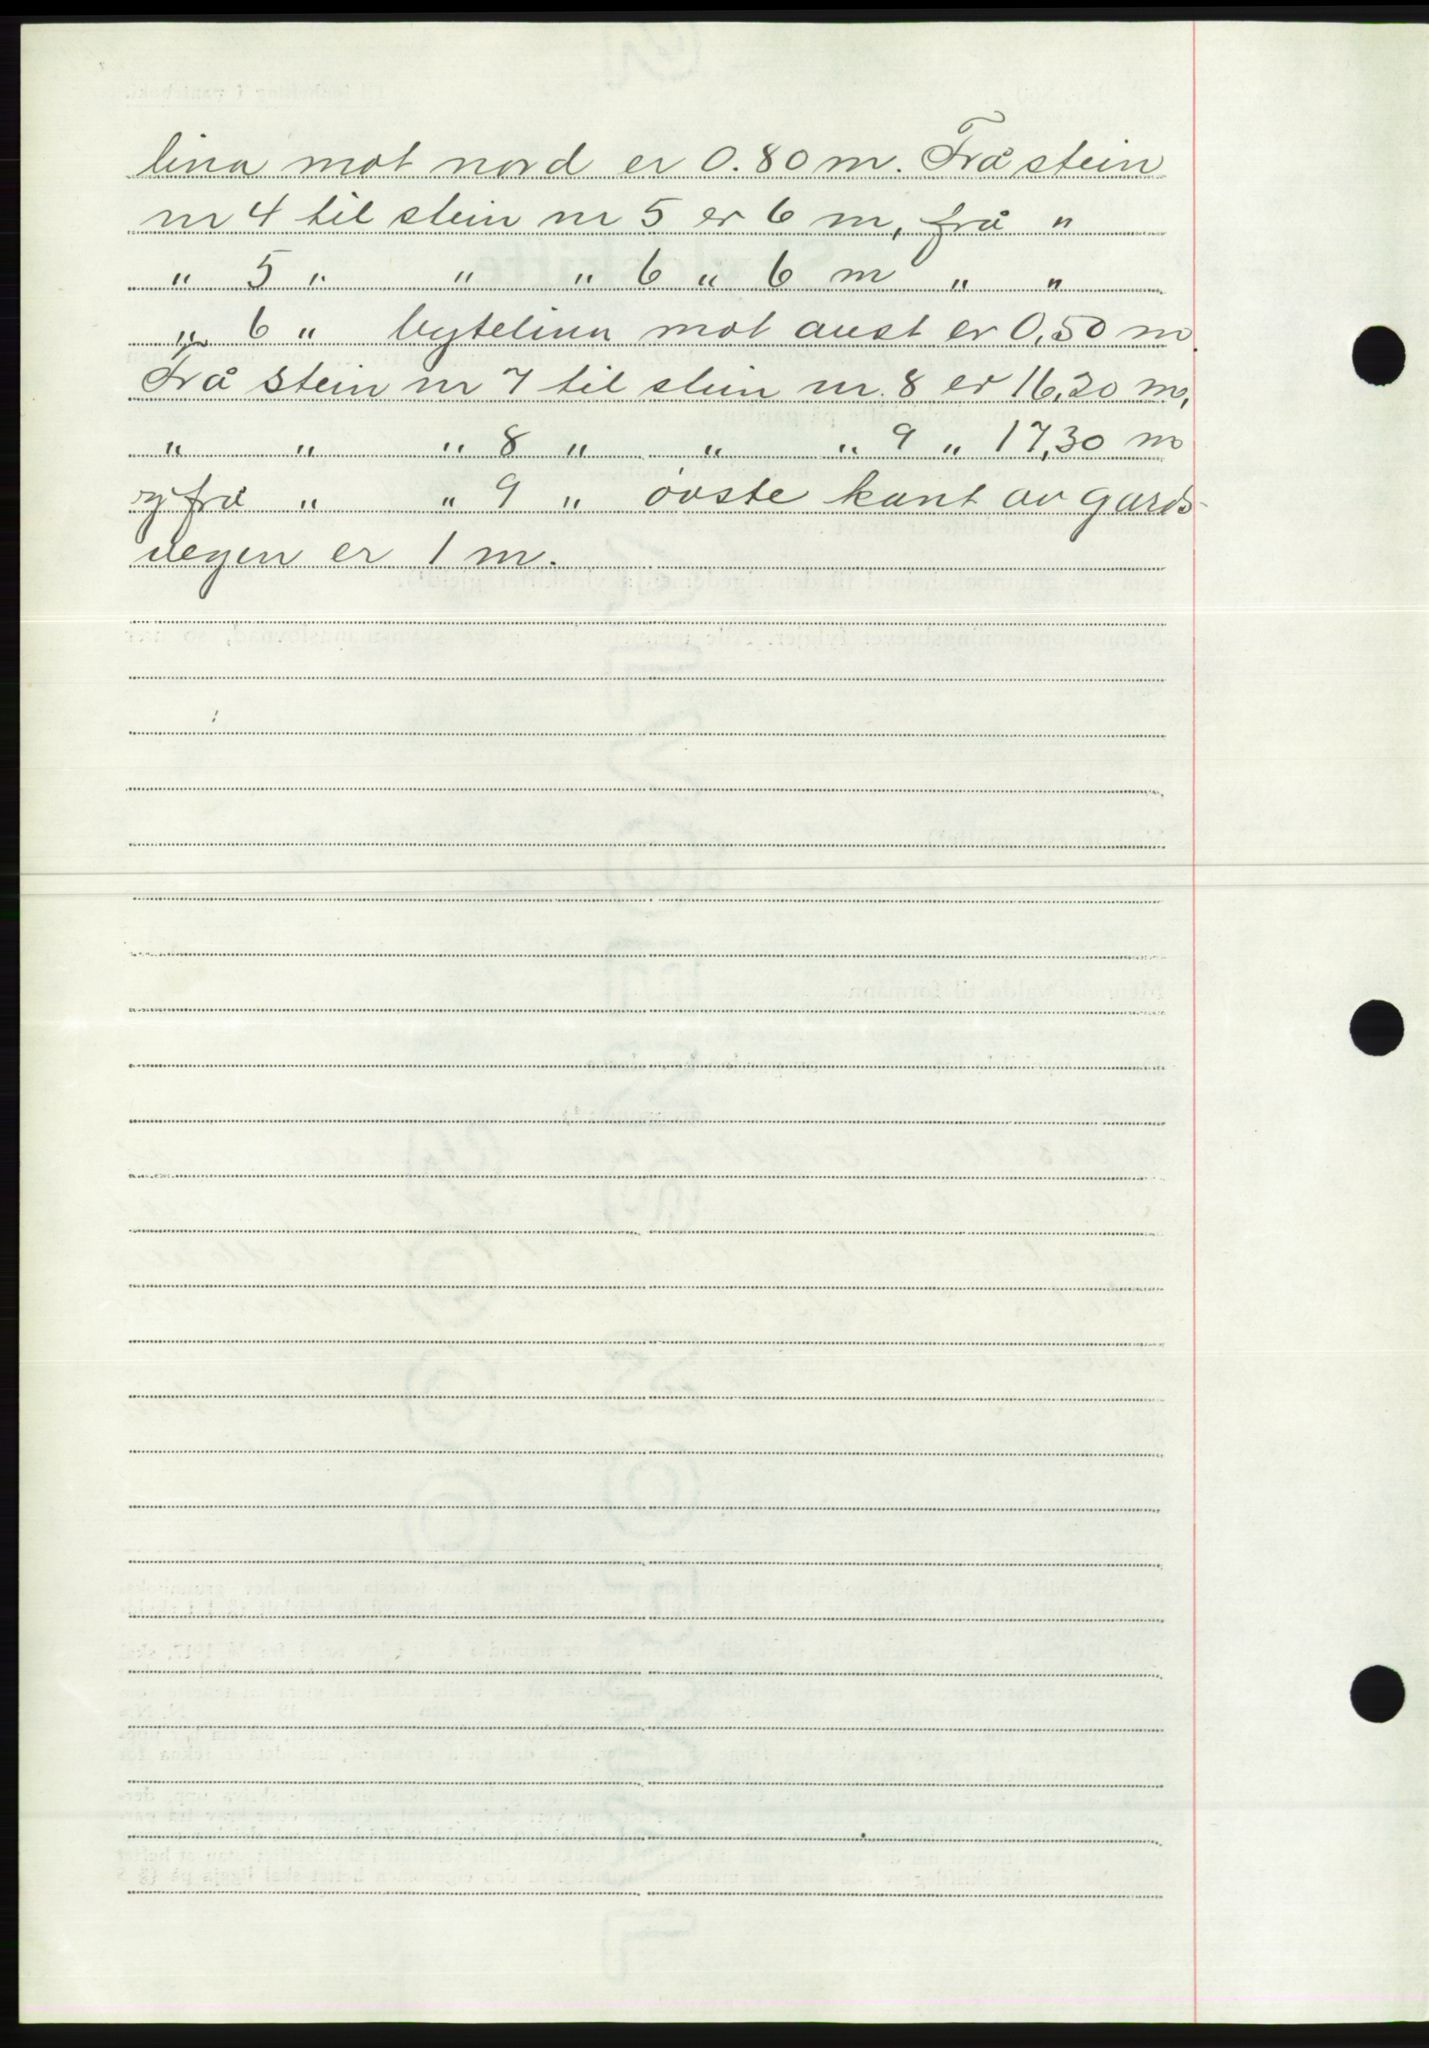 lina mot nord er 0.80 m. Frå stein
nr 4 til stein nr 5 er 6 m, frå "
" 5 " " " 6 " 6 m " "
" 6 " bytelina mot aust er 0,50 m.
Frå stein nr 7 til stein nr. 8 er 16,20 m,
" " " 8 " " " 9 " 17,30 m
og frå " " 9 " øvste kant av gards-
vegen er 1 m.